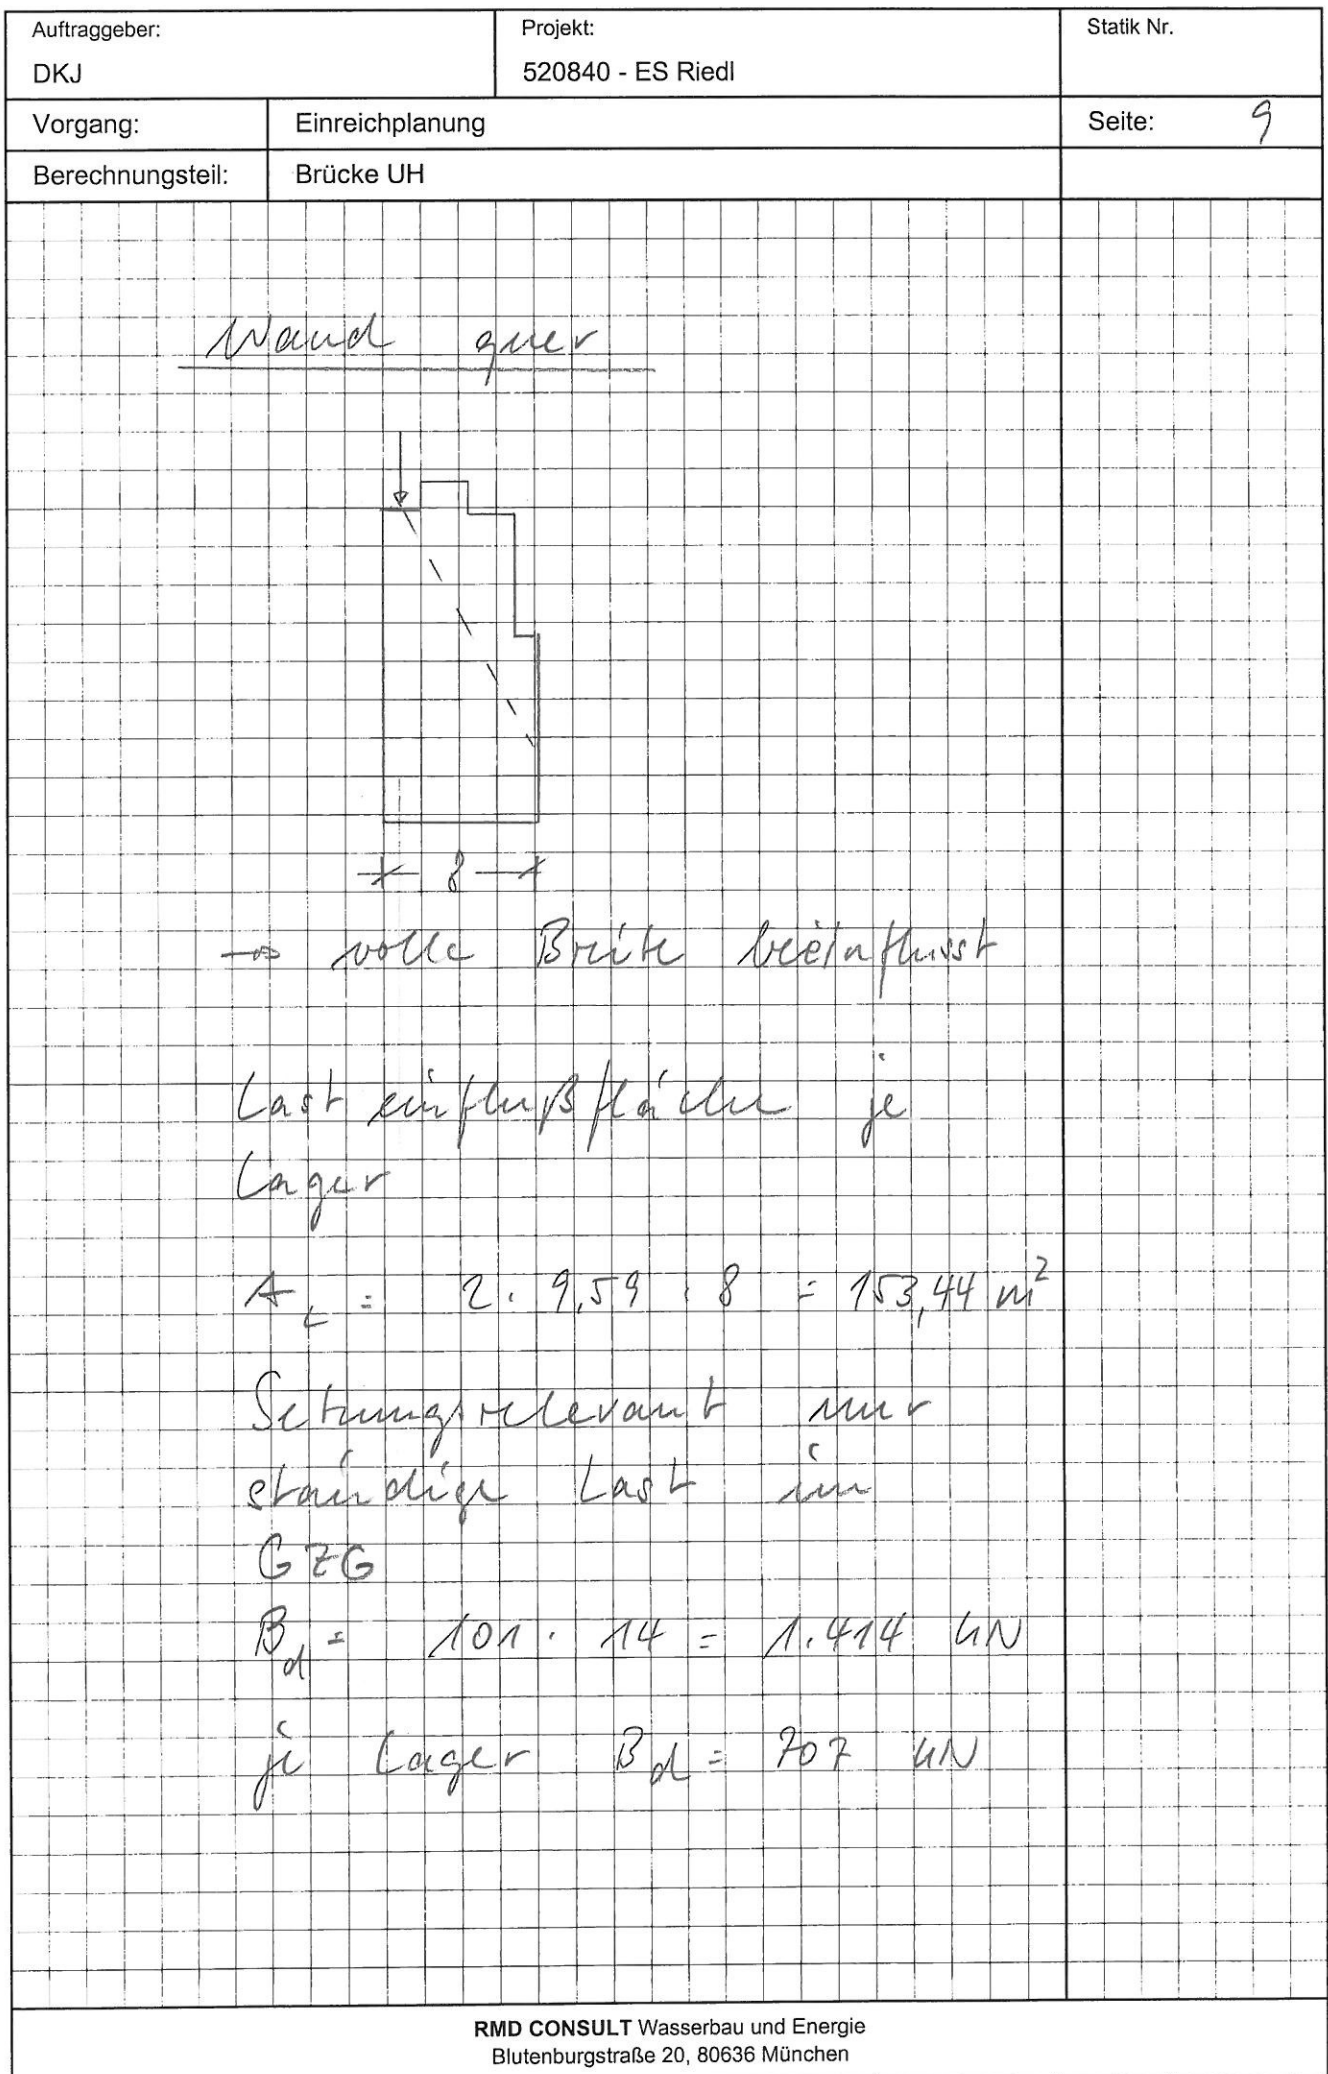 Auftraggeber:
DKJ
Projekt:
520840 - ES Riedl
Statik Nr.
Vorgang:
Einreichplanung
Seite: 9
Berechnungsteil:
Brücke UH
Wand quer
8
→ volle Breite beeinflusst
Lasteinflußfläche je
Lager
A_L = 2 · 9,59 · 8 = 153,44 m²
Setzungsrelevant nur
ständige Last im
GZG
B_d = 101 · 14 = 1.414 kN
je Lager B_d = 707 kN
RMD CONSULT Wasserbau und Energie
Blutenburgstraße 20, 80636 München